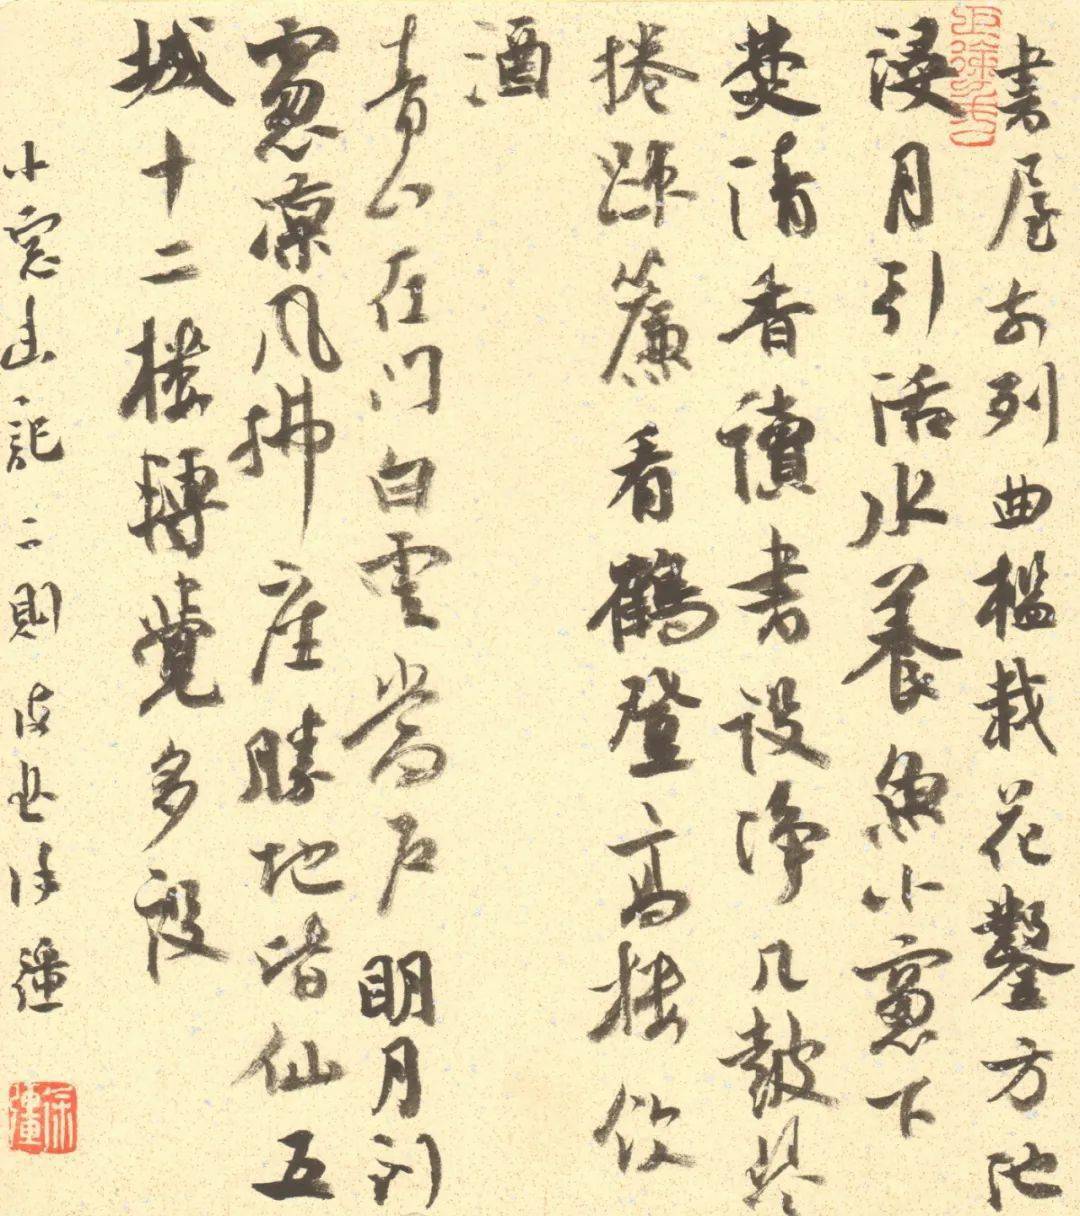 書屋前列曲檻栽花鑿方池
浸月引活水養魚小窻下
焚清香讀書設淨几鼓琴
捲疎簾看鶴登高樓飲
酒
青山在門白雲當戶明月到
窻凉風拂座勝地皆仙五
城十二樓轉覺多設
小窓幽記二則 徐